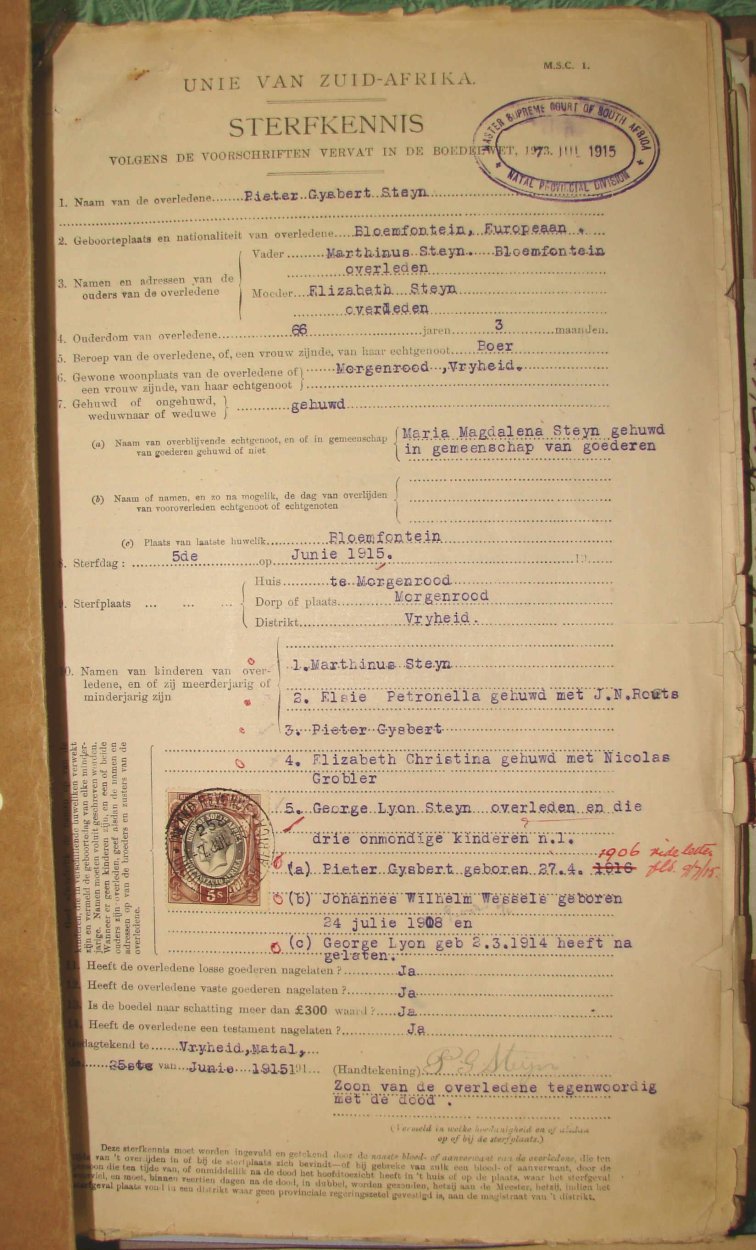 M.S.C. 1.
UNIE VAN ZUID-AFRIKA.
STERFKENNIS
VOLGENS DE VOORSCHRIFTEN VERVAT IN DE BOEDELWET, 1913.
MASTER SUPREME COURT OF SOUTH AFRICA
7 JUL 1915
NATAL PROVINCIAL DIVISION
1. Naam van de overledene Pieter Gysbert Steyn
2. Geboorteplaats en nationaliteit van overledene Bloemfontein, Europeaan .
3. Namen en adressen van de ouders van de overledene
Vader Marthinus Steyn. Bloemfontein
overleden
Moeder Elizabeth Steyn
overleden
4. Ouderdom van overledene 66 jaren 3 maanden.
5. Beroep van de overledene, of, een vrouw zijnde, van haar echtgenoot Boer
6. Gewone woonplaats van de overledene of Morgenrood ,Vryheid.
een vrouw zijnde, van haar echtgenoot
7. Gehuwd of ongehuwd, gehuwd
weduwnaar of weduwe
(a) Naam van overblijvende echtgenoot, en of in gemeenschap Maria Magdalena Steyn gehuwd
van goederen gehuwd of niet in gemeenschap van goederen
(b) Naam of namen, en zo na mogelik, de dag van overlijden
van vooroverleden echtgenoot of echtgenoten
(c) Plaats van laatste huwelik Bloemfontein
8. Sterfdag : 5de op Junie 1915. 19
9. Sterfplaats ... ... ...
Huis te Morgenrood
Dorp of plaats Morgenrood
Distrikt Vryheid.
10. Namen van kinderen van over-
ledene, en of zij meerderjarig of
minderjarig zijn
1. Marthinus Steyn
2. Elsie Petronella gehuwd met J.N.Routs
3. Pieter Gysbert
4. Elizabeth Christina gehuwd met Nicolas
Grobler
5. George Lyon Steyn overleden en die
drie onmondige kinderen n.l.
(a) Pieter Gysbert geboren 27.4. 1916 1906 vide letter fld. 9/7/15.
(b) Johannes Wilhelm Wessels geboren
24 julie 1908 en
(c) George Lyon geb 2.3.1914 heeft na
gelaten.
kinderen, die in verschillende huweliken verwekt
zijn en vermeld de geboortedag van elke minder-
jarige. Namen moeten voluit geschreven worden.
Wanneer er geen kinderen zijn, en een of beide
ouders zijn overleden, geef alsdan de namen en
adressen op van de broeders en zusters van de
overledene.
5s
11. Heeft de overledene losse goederen nagelaten ? Ja
12. Heeft de overledene vaste goederen nagelaten ? Ja
13. Is de boedel naar schatting meer dan £300 waard ? Ja
14. Heeft de overledene een testament nagelaten ? Ja
Gedagtekend te Vryheid,Natal,
de 25ste van Junie 1915 191 (Handtekening) P G Steyn
Zoon van de overledene tegenwoordig
met de dood .
(Vermeld in welke hoedanigheid en of alsdan
op of bij de sterfplaats.)
Deze sterfkennis moet worden ingevuld en getekend door de naaste bloed- of aanverwant van de overledene, die ten
tijde van 't overlijden in of bij de sterfplaats zich bevindt—of bij gebreke van zulk een bloed- of aanverwant, door de
persoon die ten tijde van, of onmiddellik na de dood het hoofdtoezicht heeft in 't huis of op de plaats, waar het sterfgeval
voorviel, en moet, binnen veertien dagen na de dood, in dubbel, worden gezonden, hetzij aan de Meester, hetzij, indien het
sterfgeval plaats vond in een distrikt waar geen provinciale regeringszetel gevestigd is, aan de magistraat van 't distrikt.